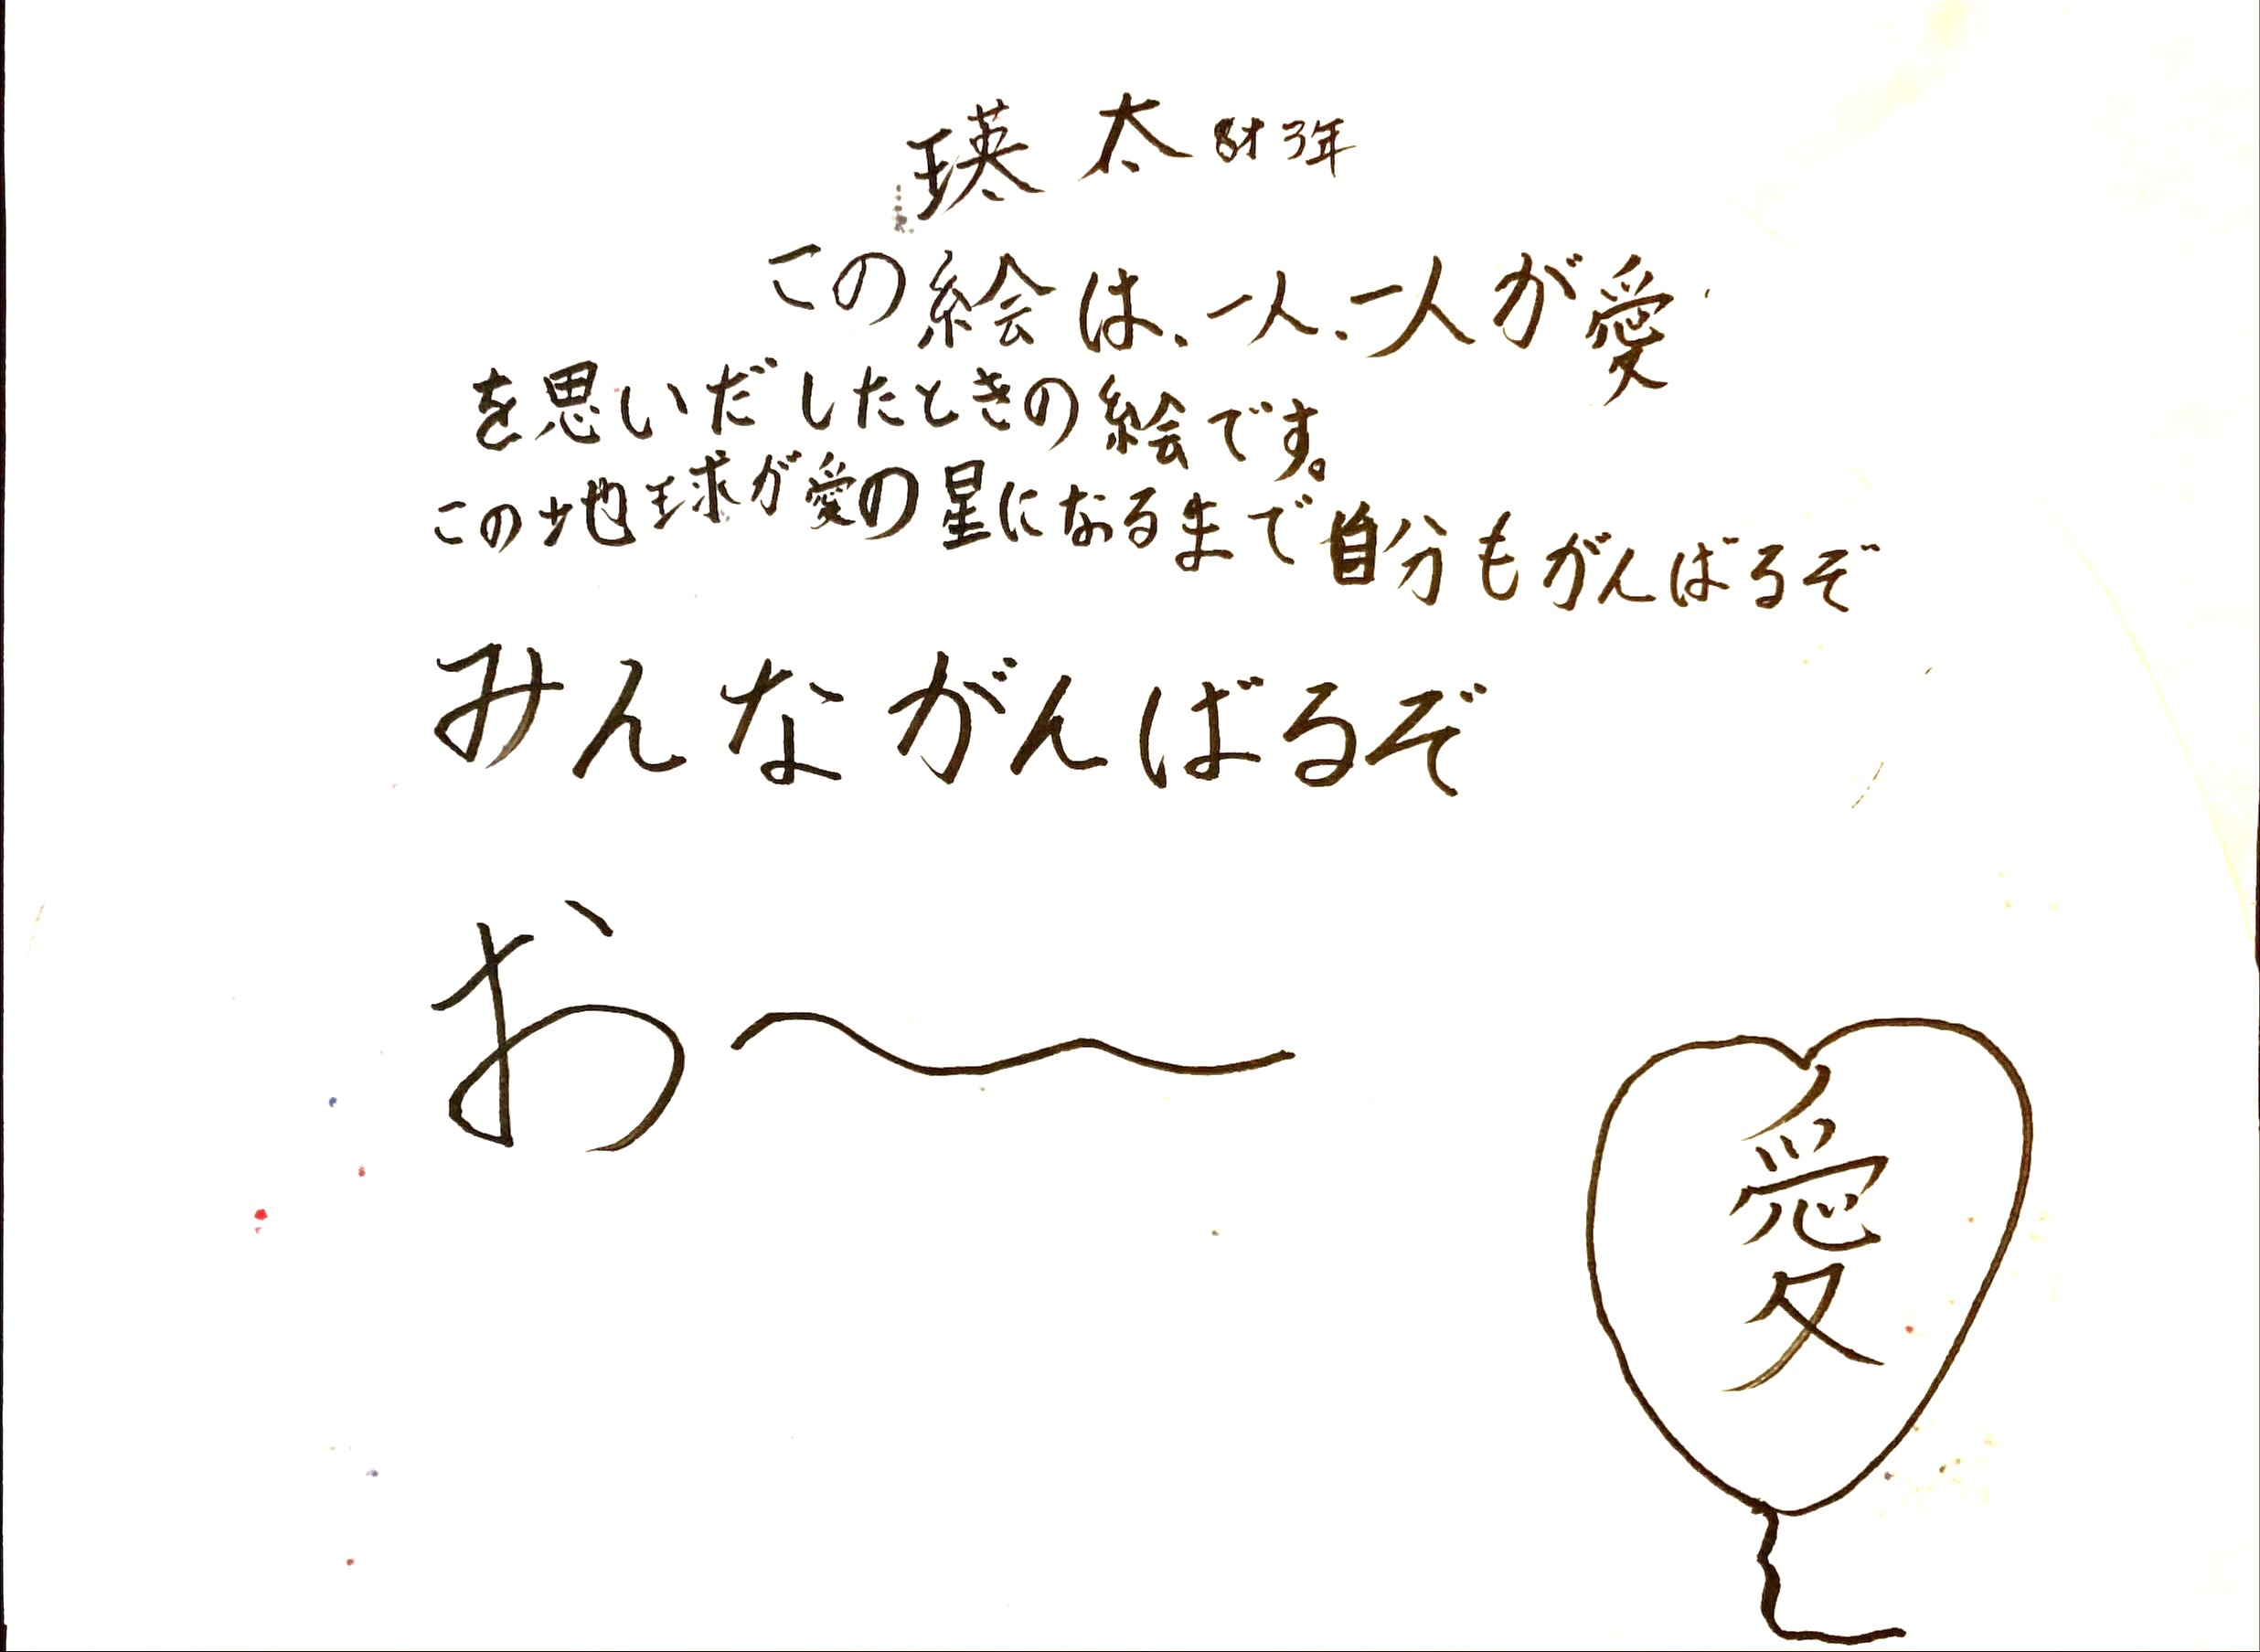 瑛太 8才 3年
この絵は、一人、一人が愛
を思いだしたときの絵です。
この地球が愛の星になるまで自分もがんばるぞ
みんながんばるぞ
お〜
愛